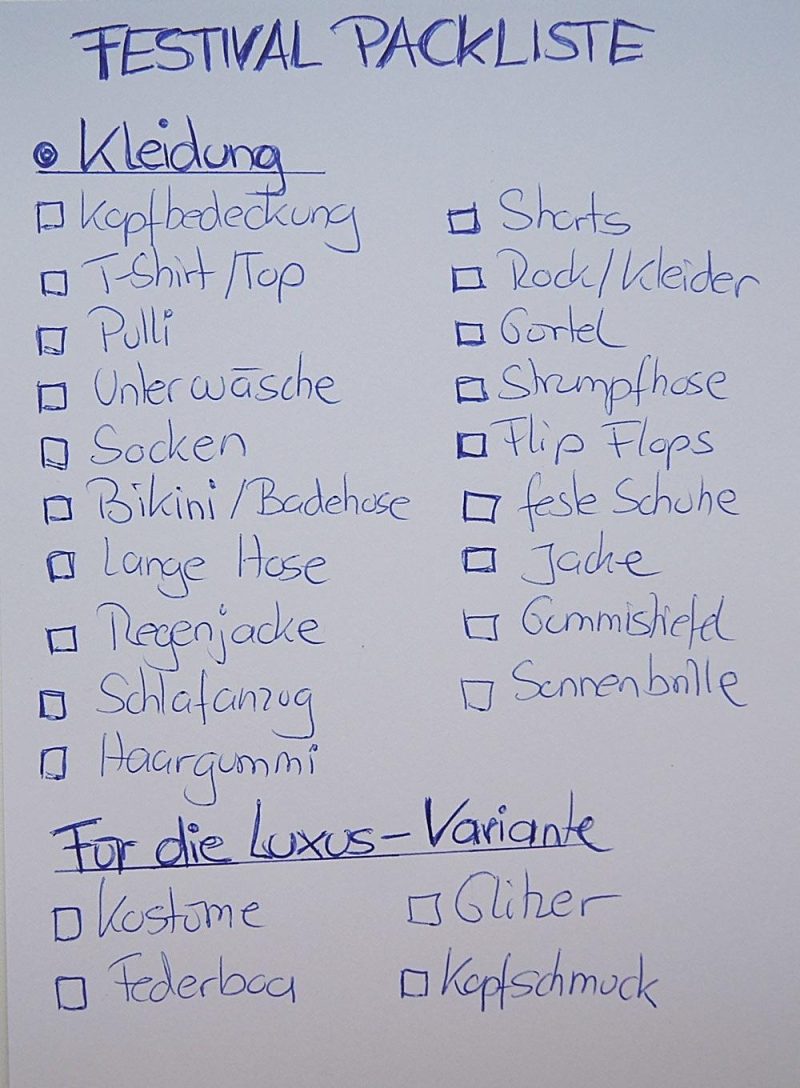 FESTIVAL PACKLISTE
Kleidung
Kopfbedeckung
T-Shirt/Top
Pulli
Unterwäsche
Socken
Bikini/Badehose
Lange Hose
Regenjacke
Schlafanzug
Haargummi
Shorts
Rock/Kleider
Gürtel
Strumpfhose
Flip Flops
feste Schuhe
Jacke
Gummistiefel
Sonnenbrille
Für die Luxus-Variante
Kostüme
Federboa
Glitzer
Kopfschmuck